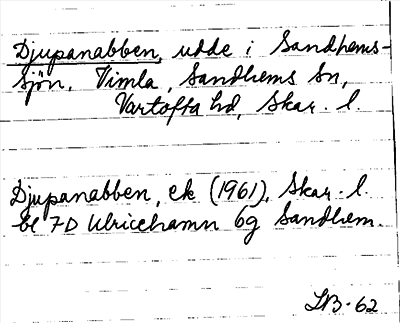 Djupanabben, udde i Sandhems-
sjön, Vimla, Sandhems sn,
Vartofta hd, Skar. l.
Djupanabben, ek (1961), Skar. l.
bl 7D Ulricehamn 6g Sandhem.
LB-62